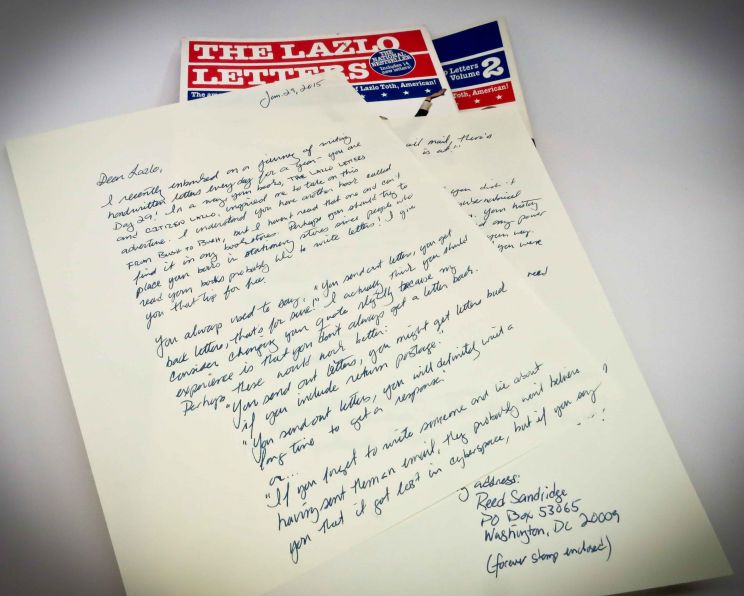 THE LAZLO
LETTERS
THE
NATIONAL
BESTSELLER
Includes 14
new letters!
The am
f Lazlo Toth, American!
o Letters
Volume 2
Toth, American!
Jan. 29, 2015
Dear Lazlo,
I recently embarked on a journey of writing
handwritten letters every day for a year - you are
Day 29! In a way, your books, THE LAZLO LETTERS
and CITIZEN LAZLO, inspired me to take on this
adventure. I understand you have another book called
FROM BUSH TO BUSH, but I haven't read that one and can't
find it in any bookstores. Perhaps you should try to
place your books in stationery stores since people who
read your books probably like to write letters! I give
you that tip for free.
You always used to say, "You send out letters, you get
back letters, that's for sure!" I actually think you should
consider changing your quote slightly because my
experience is that you don't always get a letter back.
Perhaps these would work better:
"You send out letters, you might get letters back
if you include return postage.
"You send out letters, you will definitely wait a
long time to get a response.
or...
"If you forget to write someone and lie about
having sent them an email, they probably won't believe
you that it got lost in cyberspace, but if you say
mail, there's
is at!"
dish it
Your history
any power
your way.
you were
new
address:
Reed Sandridge
PO Box 53065
Washington, DC 20009
(forever stamp enclosed)